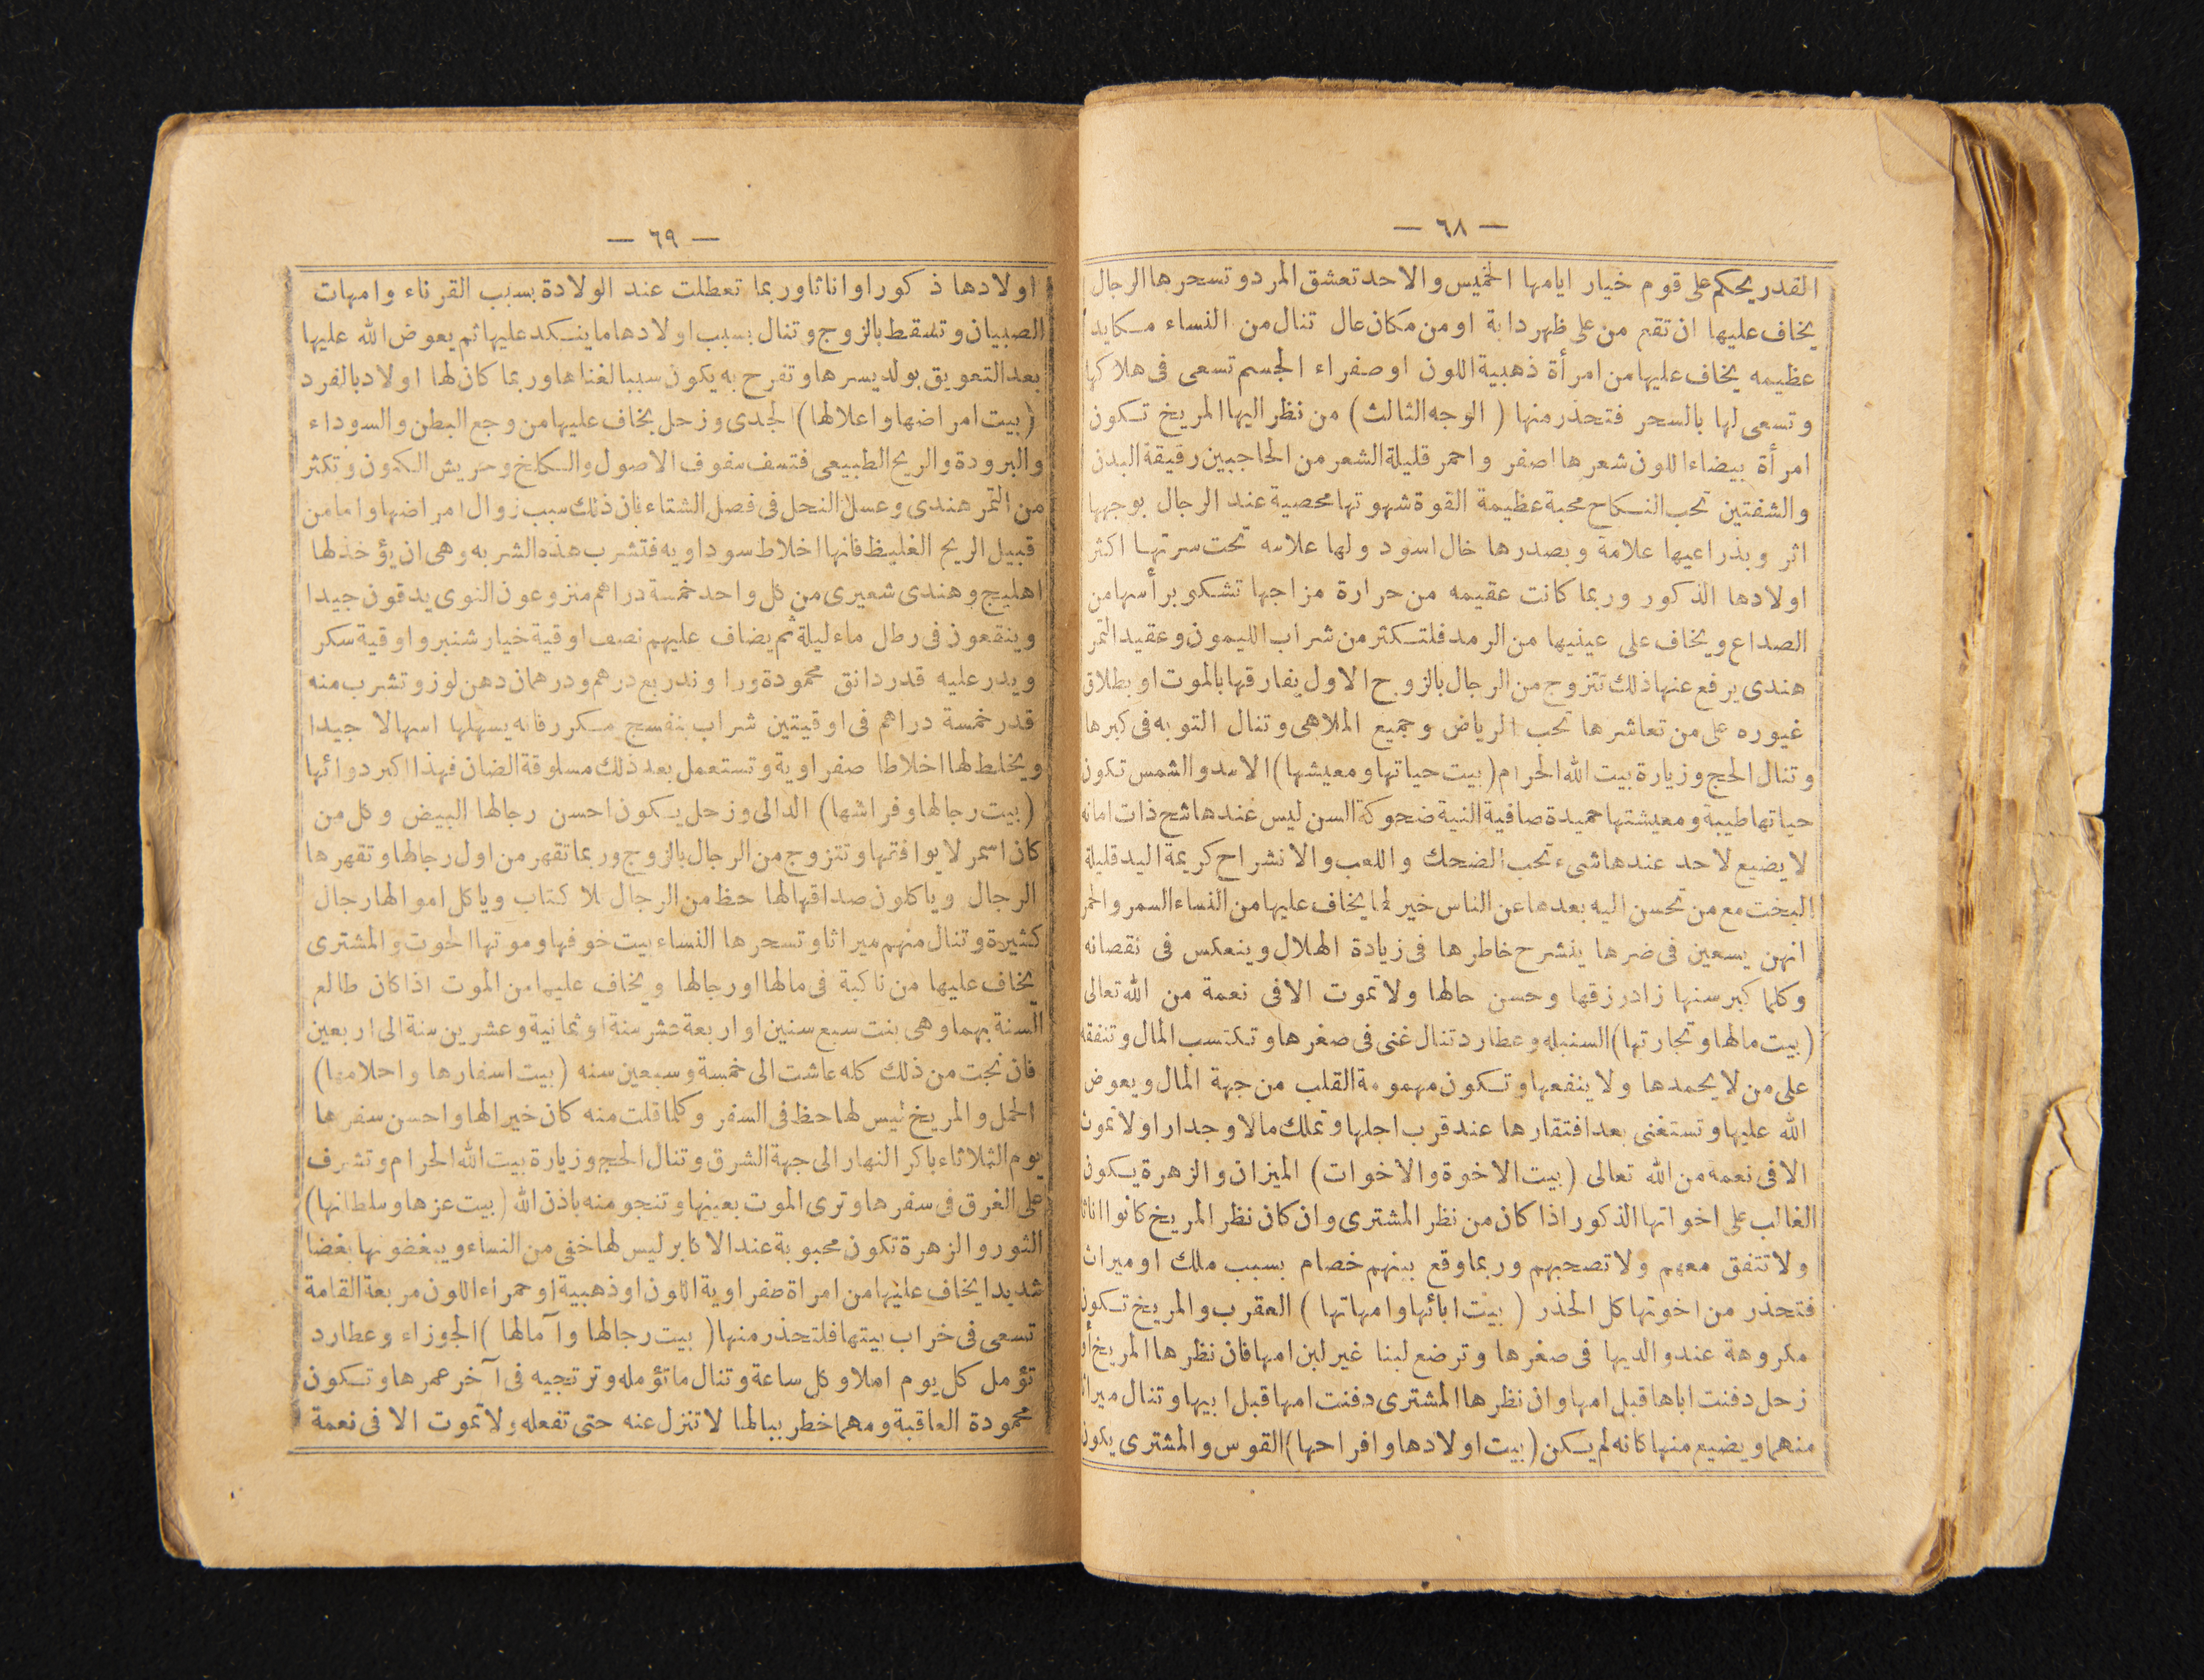 — ٦٨ —
القدر يحكم على قوم خيار ايامها الخميس والاحد تعشق المرد وتسحرها الرجال
يخاف عليها ان تقع من على ظهر دابة او من مكان عال تنال من النساء مكايد
عظيمه يخاف عليها من امرأة ذهبية اللون او صفراء الجسم تسعى فى هلاكها
وتسعى لها بالسحر فتحذر منها (الوجه الثالث) من نظر اليها المريخ تكون
امرأة بيضاء اللون شعرها اصفر واحمر قليلة الشعر من الحاجبين رقيقة البدن
والشفتين تحب النكاح محبة عظيمة القوة شهوتها محصية عند الرجال بوجهها
اثر وبذراعيها علامة وبصدرها خال اسود ولها علامه تحت سرتها اكثر
اولادها الذكور وربما كانت عقيمه من حرارة مزاجها تشكو برأسها من
الصداع ويخاف على عينيها من الرمد فلتكثر من شراب الليمون وعقيد التمر
هندى يرفع عنها ذلك تتزوج من الرجال بالزوج الاول يفارقها بالموت او بطلاق
غيوره على من تعاشرها تحب الرياض وجميع الملاهى وتنال التوبه فى كبرها
وتنال الحج وزيارة بيت الله الحرام (بيت حياتها ومعيشها) الاسد والشمس تكون
حياتها طيبة ومعيشتها حميدة صافية النية ضحوكة السن ليس عندها شح ذات امانه
لا يضيع لاحد عندها شىء تحب الضحك واللعب والانشراح كريمة اليد قليلة
البخت مع من تحسن اليه بعدها عن الناس خير لها يخاف عليها من النساء السمر والحمر
انهن يسعين فى ضرها ينشرح خاطرها فى زيادة الهلال وينعكس فى نقصانه
وكلما كبر سنها زاد رزقها وحسن حالها ولا تموت الا فى نعمة من الله تعالى
(بيت مالها وتجارتها) السنبله وعطارد تنال غنى فى صغرها وتكتسب المال وتنفقه
على من لا يحمدها ولا ينفعها وتكون مهمومة القلب من جهة المال ويعوض
الله عليها وتستغنى بعد افتقارها عند قرب اجلها وتملك مالا وجدارا ولا تموت
الا فى نعمة من الله تعالى (بيت الاخوة والاخوات) الميزان والزهرة يكون
الغالب على اخواتها الذكور اذا كان من نظر المشترى وان كان نظر المريخ كانوا اناثا
ولا تتفق معهم ولا تصحبهم وربما وقع بينهم خصام بسبب ملك او ميراث
فتحذر من اخوتها كل الحذر (بيت ابائها وامهاتها) العقرب والمريخ تكون
مكروهة عند والديها فى صغرها وترضع لبنا غير لبن امها فان نظرها المريخ او
زحل دفنت اباها قبل امها وان نظرها المشترى دفنت امها قبل ابيها وتنال ميراثا
منهما ويضيع منها كانه لم يكن (بيت اولادها وافراحها) القوس والمشترى يكون
— ٦٩ —
اولادها ذكورا واناثا وربما تعطلت عند الولادة بسبب القرناء وامهات
الصبيان وتسقط بالزوج وتنال بسبب اولادها ما ينكد عليها ثم يعوض الله عليها
بعد التعويق بولد يسرها وتفرح به يكون سببا لغناها وربما كان لها اولاد بالفرد
(بيت امراضها واعلالها) الجدى وزحل يخاف عليها من وجع البطن والسوداء
والبرودة والريح الطبيعى فتسف سفوف الاصول والكلخ وحريش الكون وتكثر
من التمر هندى وعسل النحل فى فصل الشتاء فان ذلك سبب زوال امراضها واما من
قبيل الريح الغليظ فانها اخلاط سوداويه فتشرب هذه الشربه وهى ان يؤخذ لها
اهليج وهندى شعيرى من كل واحد خمسة دراهم منزوعون النوى يدقون جيدا
وينقعون فى رطل ماء ليلة ثم يضاف عليهم نصف اوقية خيار شنبر واوقية سكر
ويدر عليه قدر دانق محمودة وراوندر ربع درهم ودرهمان دهن لوز وتشرب منه
قدر خمسة دراهم فى اوقيتين شراب بنفسج مكرر فانه يسهلها اسهالا جيدا
ويخلط لها اخلاطا صفراوية وتستعمل بعد ذلك مسلوقة الضان فهذا اكبر دوائها
(بيت رجالها وفراشها) الدالى وزحل يكون احسن رجالها البيض وكل من
كان اسمر لا يوافقها وتتزوج من الرجال بالزوج وربما تقهر من اول رجالها وتقهرها
الرجال وياكلون صداقها لها حظ من الرجال بلا كتاب وياكل اموالها رجال
كثيرة وتنال منهم ميراثا وتسحرها النساء بيت خوفها وموتها الحوت والمشترى
يخاف عليها من ناكبة فى مالها او رجالها ويخاف عليها من الموت اذا كان طالع
السنة بهما وهى بنت سبع سنين او اربعة عشر سنة او ثمانية وعشرين سنة الى اربعين
فان نجت من ذلك كله عاشت الى خمسة وسبعين سنه (بيت اسفارها واحلامها)
الحمل والمريخ ليس لها حظ فى السفر وكلما قلت منه كان خيرا لها واحسن سفرها
يوم الثلاثاء باكر النهار الى جهة الشرق وتنال الحج وزيارة بيت الله الحرام وتشرف
على الغرق فى سفرها وترى الموت بعينها وتنجو منه باذن الله (بيت عزها وسلطانها)
الثور والزهرة تكون محبوبة عند الاكابر ليس لها خفى من النساء ويبغضونها بغضا
شديدا يخاف عليها من امراة صفراوية اللون او ذهبية او حمراء اللون مربعة القامة
تسعى فى خراب بيتها فلتحذر منها (بيت رجالها وآمالها) الجوزاء وعطارد
تؤمل كل يوم املا وكل ساعة وتنال ما تؤمله وترتجيه فى آخر عمرها وتكون
محمودة العاقبة ومهما خطر ببالها لا تنزل عنه حتى تفعله ولا تموت الا فى نعمة